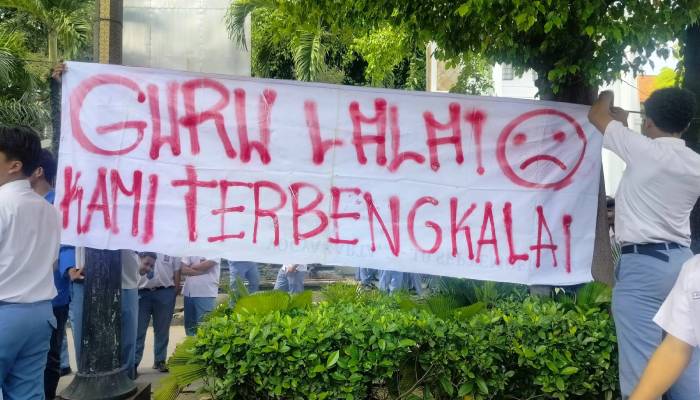 GURU LALAI
KAMI TERBENGKALAI